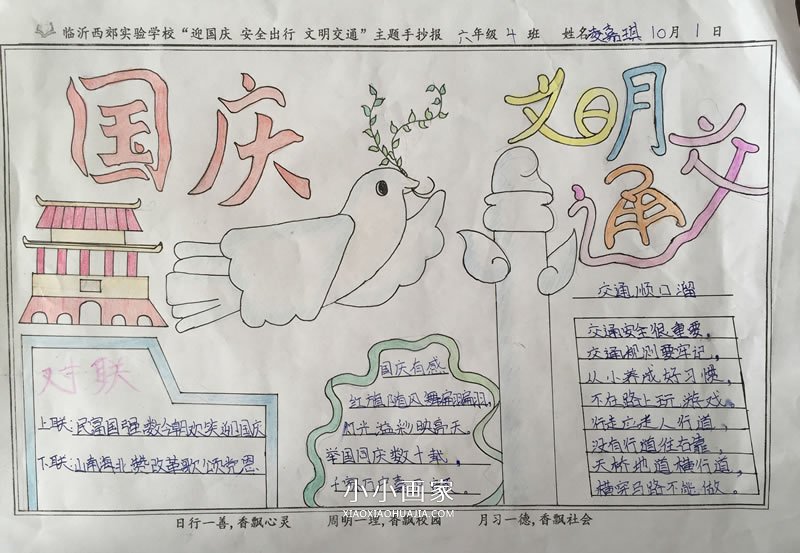 临沂西郊实验学校“迎国庆 安全出行 文明交通”主题手抄报 六年级 4 班 姓名 10月 1 日
国庆
文明
交通
对联
上联:民富国强数今朝欢笑迎国庆
下联:山南海北赞改革歌颂党恩
国庆有感
红旗随风舞翩翩,
阳光溢彩助亮天。
举国同庆数十载,
交通顺口溜
交通安全很重要,
交通规则要牢记,
从小养成好习惯,
不在路上玩游戏。
行走应走人行道,
没有行道往右靠,
天桥地道横行道,
横穿马路不能做。
小小画家
XIAOXIAOHUAJIA.COM
日行一善,香飘心灵 周明一理,香飘校园 月习一德,香飘社会